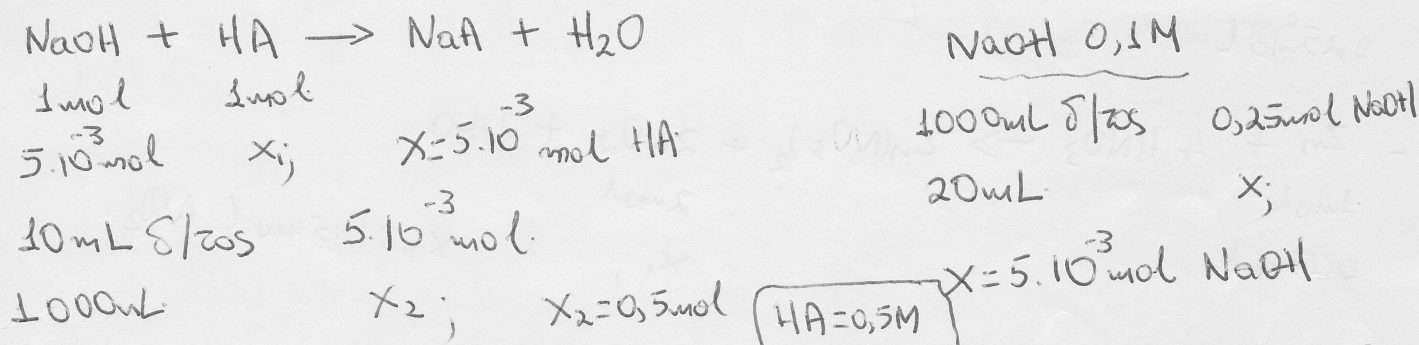 NaOH + HA → NaA + H₂O
1mol 1mol
5.10⁻³mol x₁; x=5.10⁻³ mol HA
10mL δ/τος 5.10⁻³mol.
1000mL x₂; x₂=0,5mol HA=0,5M
NaOH 0,1M
1000mL δ/τος 0,25mol NaOH
20mL x;
x=5.10⁻³mol NaOH